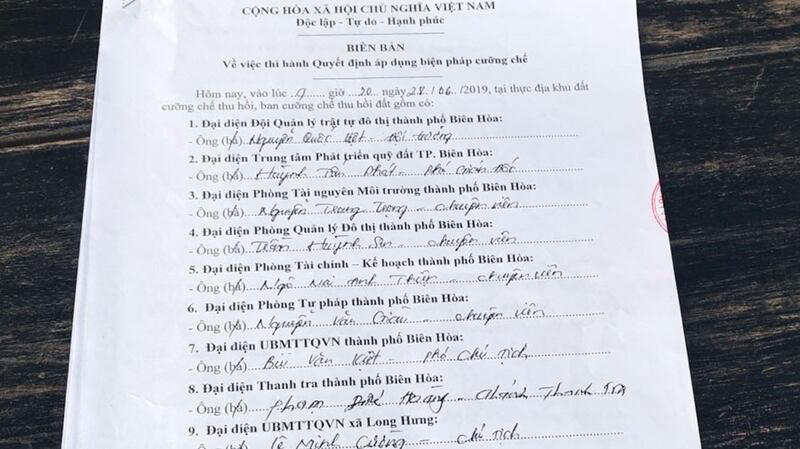 CỘNG HÒA XÃ HỘI CHỦ NGHĨA VIỆT NAM
Độc lập - Tự do - Hạnh phúc
BIÊN BẢN
Về việc thi hành Quyết định áp dụng biện pháp cưỡng chế
Hôm nay, vào lúc 9 giờ 20 ngày 28/06/2019, tại thực địa khu đất
cưỡng chế thu hồi, ban cưỡng chế thu hồi đất gồm có:
1. Đại diện Đội Quản lý trật tự đô thị thành phố Biên Hòa:
- Ông (bà) Nguyễn Quốc Việt - Đội trưởng
2. Đại diện Trung tâm Phát triển quỹ đất TP. Biên Hòa:
- Ông (bà) Huỳnh Tấn Phát - Phó Giám đốc
3. Đại diện Phòng Tài nguyên Môi trường thành phố Biên Hòa:
- Ông (bà) Nguyễn Trung - chuyên viên
4. Đại diện Phòng Quản lý Đô thị thành phố Biên Hòa:
- Ông (bà) Trần Huỳnh Sơn - chuyên viên
5. Đại diện Phòng Tài chính – Kế hoạch thành phố Biên Hòa:
- Ông (bà) Ngô Mai Anh - chuyên viên
6. Đại diện Phòng Tư pháp thành phố Biên Hòa:
- Ông (bà) Nguyễn Văn - chuyên viên
7. Đại diện UBMTTQVN thành phố Biên Hòa:
- Ông (bà) Bùi Văn Việt - Phó Chủ tịch
8. Đại diện Thanh tra thành phố Biên Hòa:
- Ông (bà) Phạm Hoàng - Chánh Thanh tra
9. Đại diện UBMTTQVN xã Long Hưng:
- Ông (bà) Lê Minh Cường - Chủ tịch